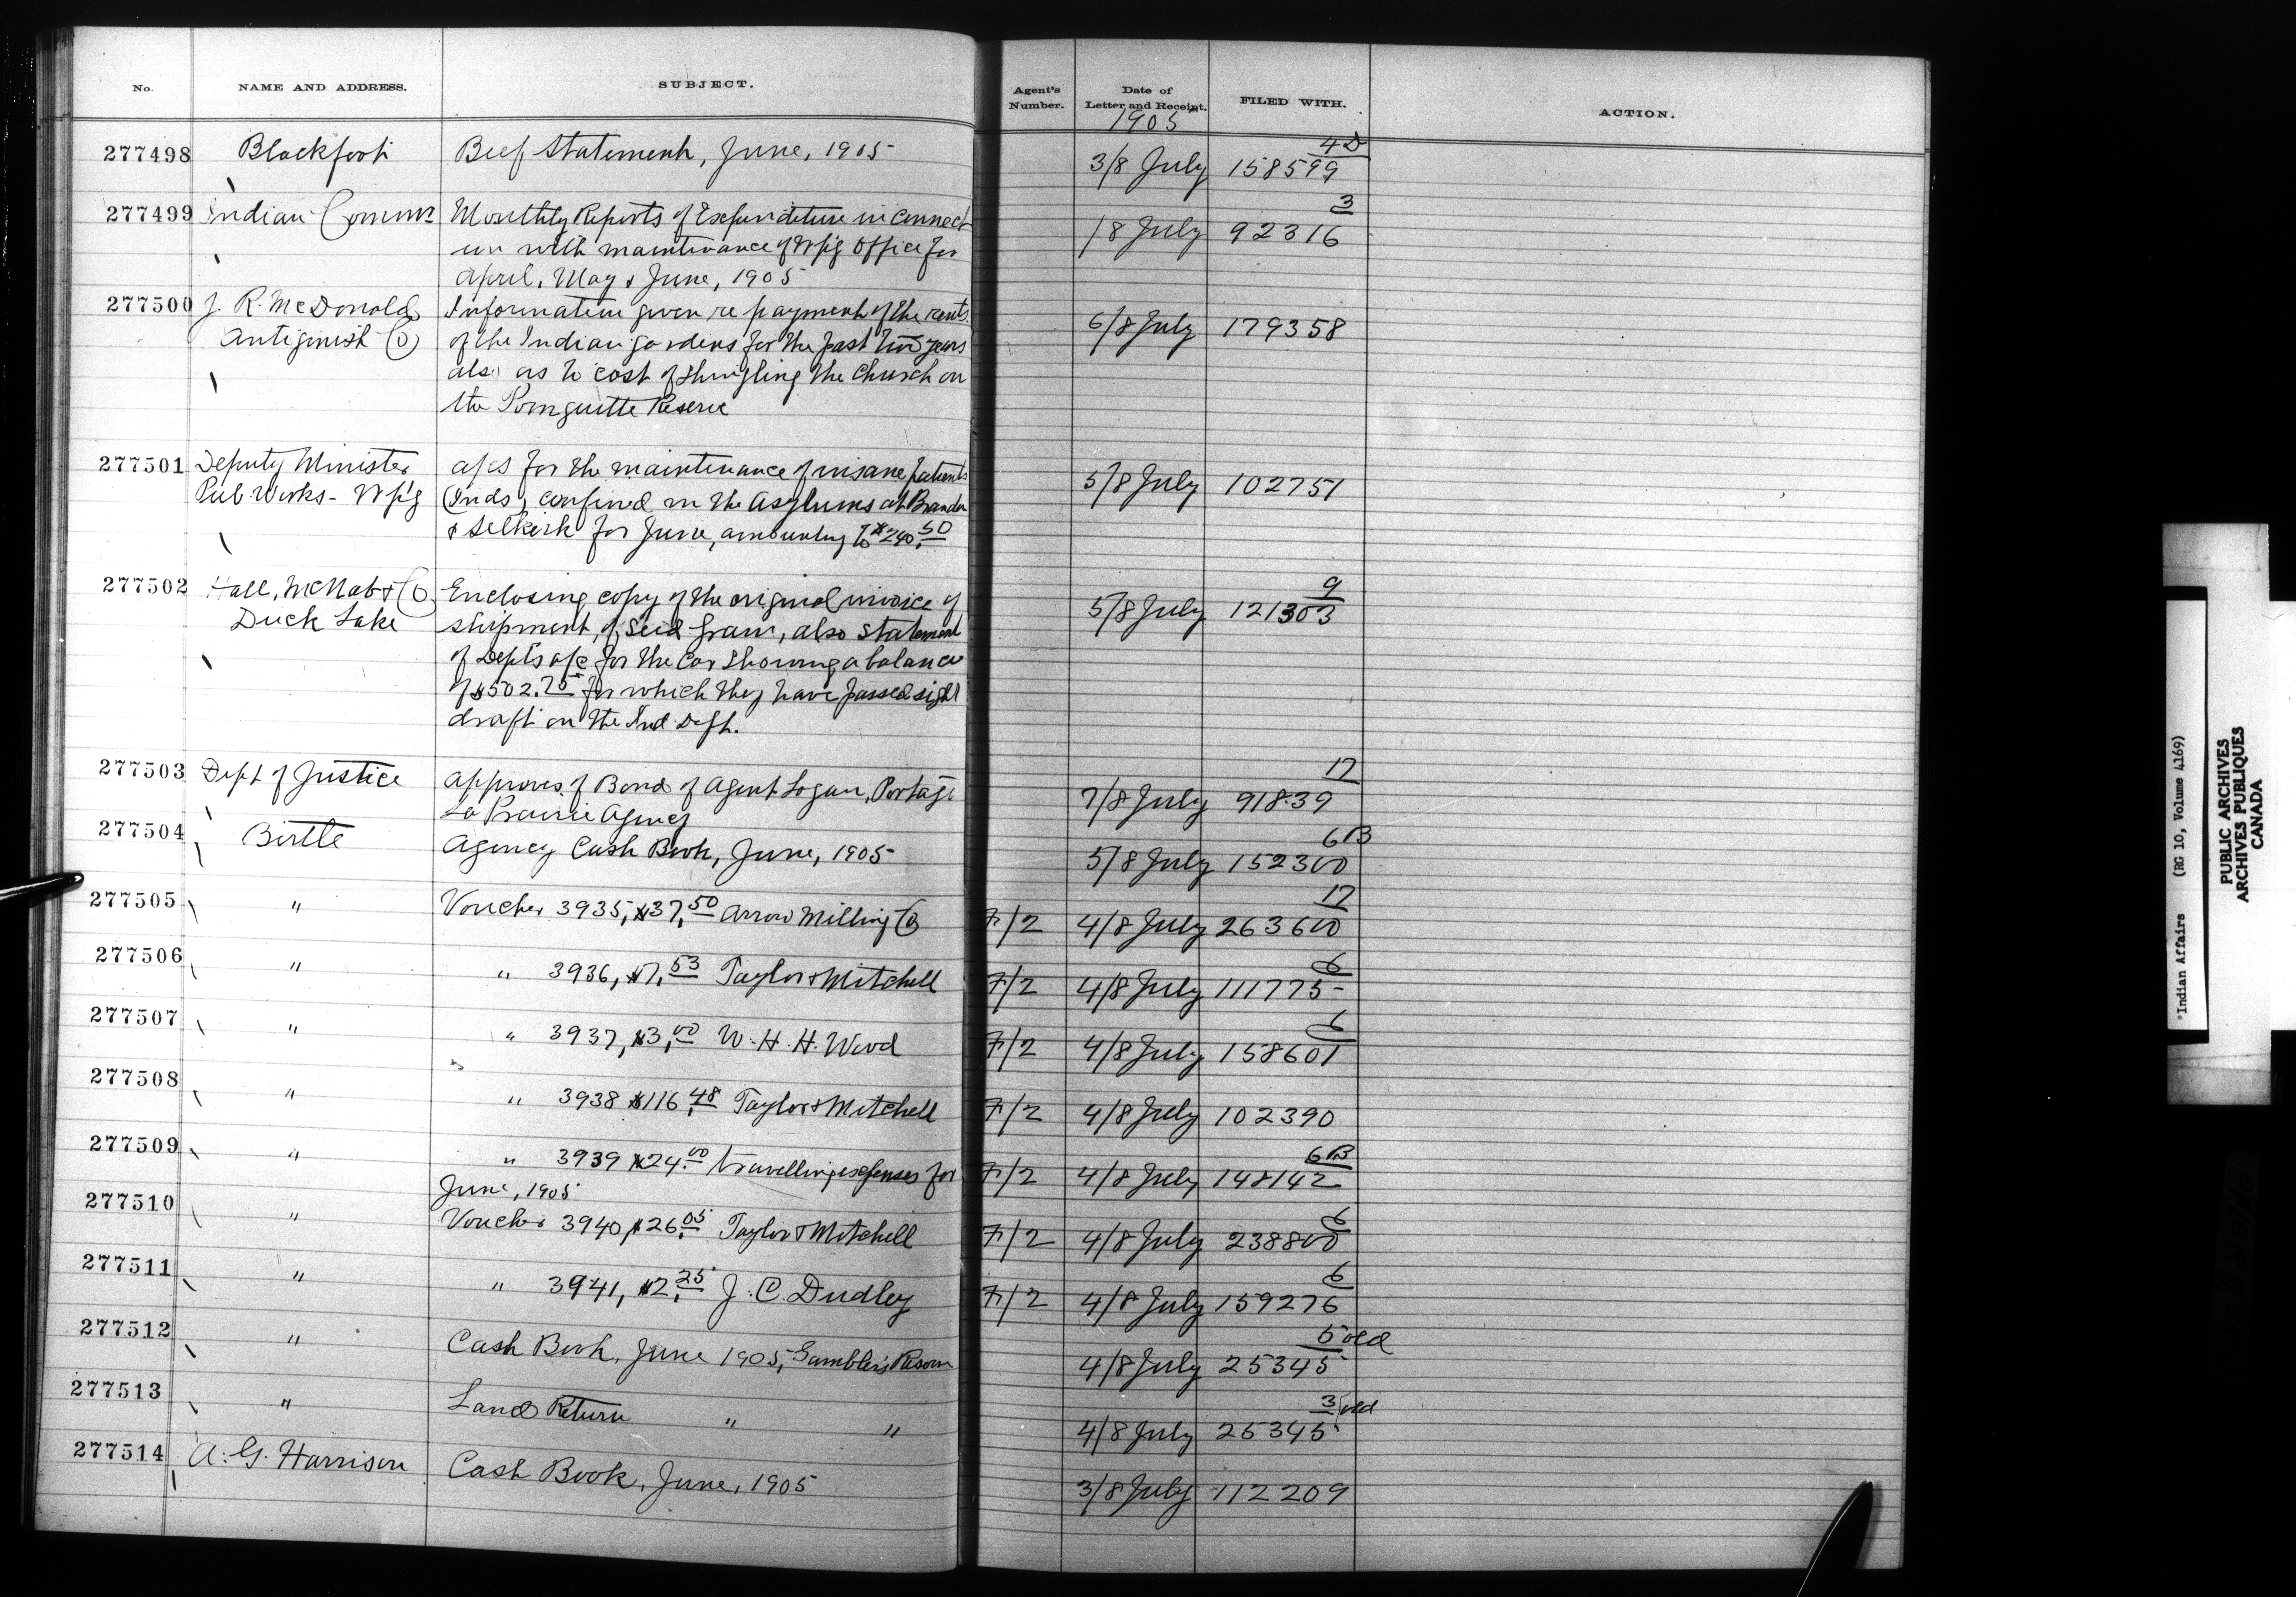 No. NAME AND ADDRESS. SUBJECT. Agent's Number. Date of Letter and Receipt. FILED WITH. ACTION.
1905
277498 Blackfoot Beef Statement, June, 1905 3/8 July 4D 158599
277499 Indian Commr Monthly Reports of Expenditure in connect 18 July 3 92316
ion with maintenance of Wpg Office for
April, May & June, 1905
277500 J. R. McDonald Information given re payment of the rents 6/8 July 179358
Antigonish Co of the Indian gardens for the past two years
also as to cost of shingling the Church on
the Pomquitte Reserve
277501 Deputy Minister a/cs for the maintenance of insane patients 5/8 July 102751
Pub. Works - Wpg (Inds) confined in the Asylums at Brandon
& Selkirk for June, amounting to $240.50
277502 Hall, McNab & Co Enclosing copy of the original invoice of 5/8 July 9 121303
Duck Lake shipment, of Seed grain, also statement
of Dept's a/c for the car showing a balance
of $502.75 for which they have passed sight
draft on the Ind. Dept.
277503 Dept of Justice approves of Bond of Agent Logan, Portage 7/8 July 17 91839
La Prairie Agency
277504 Birtle Agency Cash Book, June, 1905 5/8 July 6B 152300
277505 " Voucher 3935, $37.50 Arrow Milling Co F/2 4/8 July 17 263600
277506 " " 3936, $7.53 Taylor & Mitchell F/2 4/8 July 6 111775
277507 " " 3937, $3.00 W. H. H. Wood F/2 4/8 July 6 158601
277508 " " 3938 $116.48 Taylor & Mitchell F/2 4/8 July 102390
277509 " " 3939 $24.00 travelling expenses for F/2 4/8 July 6B 148142
June, 1905
277510 " Voucher 3940, $26.05 Taylor & Mitchell F/2 4/8 July 6 238800
277511 " " 3941, $2.25 J. C. Dudley F/2 4/8 July 6 159276
277512 " Cash Book, June 1905, Gambler's Reserve 4/8 July 5 old 25345
277513 " Land Return " " 4/8 July 3 old 25345
277514 A. G. Harrison Cash Book, June, 1905 3/8 July 112209
"Indian Affairs (RG 10, Volume 4169)
PUBLIC ARCHIVES
ARCHIVES PUBLIQUES
CANADA